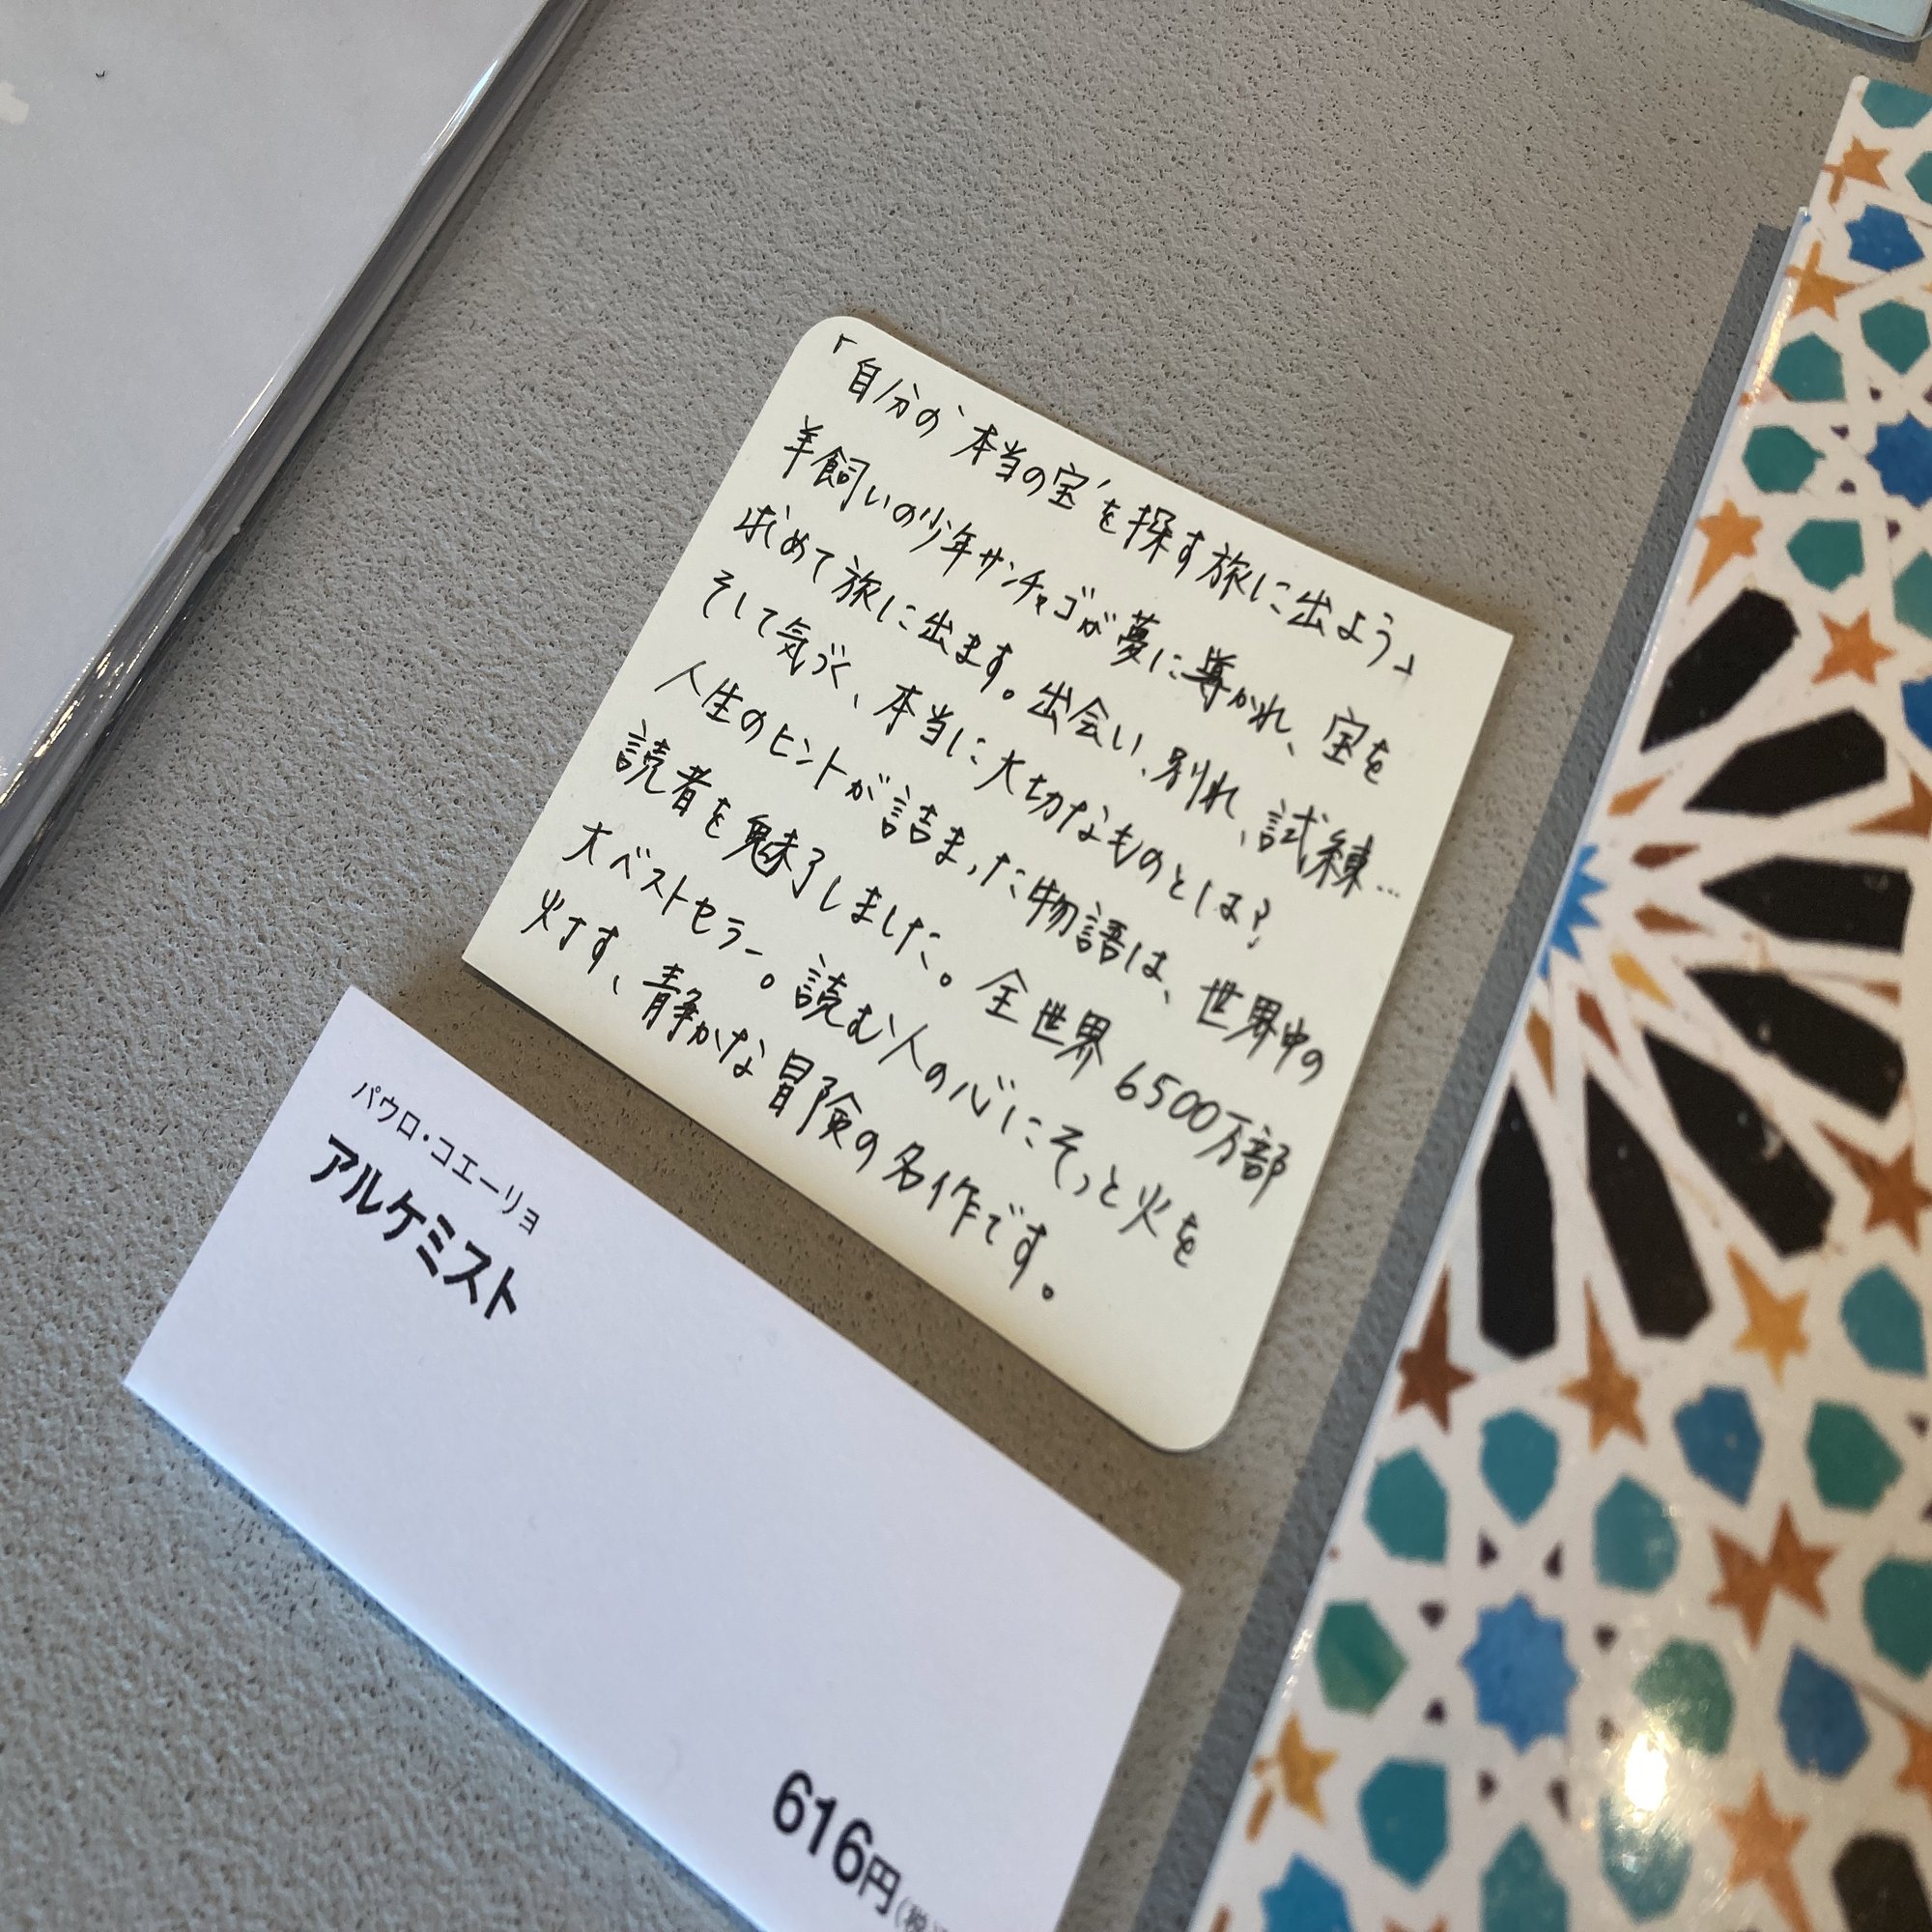 「自分の‘本当の宝’を探す旅に出よう」
羊飼いの少年サンチャゴが夢に導かれ、宝を
求めて旅に出ます。出会い、別れ、試練…
そして気づく、本当に大切なものとは?
人生のヒントが詰まった物語は、世界中の
読者を魅了しました。全世界6500万部
大ベストセラー。読む人の心にそっと火を
灯す、静かな冒険の名作です。
パウロ・コエーリョ
アルケミスト
616円(税